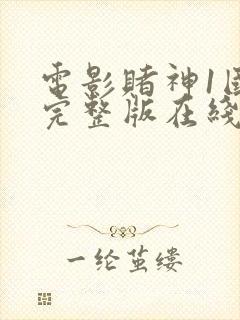 電影賭神1国
完整版在綫
一纶茧缕